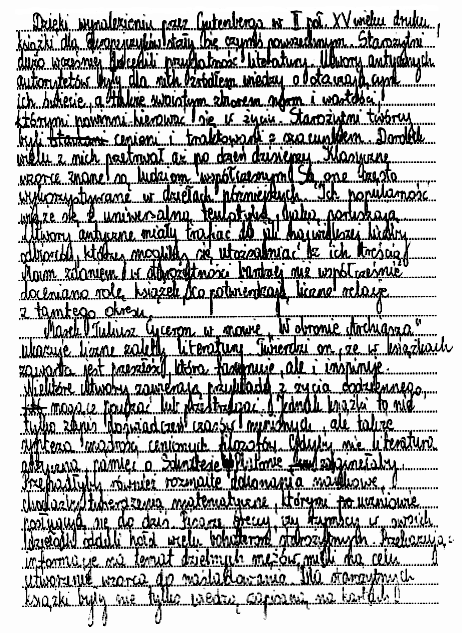 Dzięki wynalezieniu przez Gutenberga w II poł. XV wieku druku,
książki dla Europejczyków stały się czymś powszechnym. Starożytni
dużo wcześniej docenili przydatność literatury. Utwory antycznych
autorytetów były dla nich źródłem wiedzy o otaczającym
ich świecie, a także swoistym zbiorem norm i wartości,
którymi powinni kierować się w życiu. Starożytni twórcy
byli cenieni i traktowani z szacunkiem. Dorobek
wielu z nich przetrwał aż po dzień dzisiejszy. Klasyczne
wzorce znane są ludziom współczesnym. Są one często
wykorzystywane w dziełach późniejszych. Ich popularność
wiąże się z uniwersalną tematyką, jaką poruszają.
Utwory antyczne miały trafiać do jak największej liczby
odbiorców, którzy mogliby się utożsamiać z ich treścią.
Moim zdaniem w starożytności bardziej niż współcześnie
doceniano rolę książek, co potwierdzają liczne relacje
z tamtego okresu.
Marek Tuliusz Cyceron w mowie "W obronie Archiasza"
ukazuje liczne zalety literatury. Twierdzi on, że w książkach
zawarta jest przeszłość, która fascynuje, ale i inspiruje.
Niektóre utwory zawierają przykłady z życia codziennego,
mogące pouczać lub przestrzegać. Jednak książki to nie
tylko zapis doświadczeń czasów minionych, ale także
synteza mądrości cenionych filozofów. Gdyby nie literatura
antyczna, pamięć o Sokratesie, Platonie zaginęłaby.
Przepadłyby również rozmaite dokonania naukowe,
chociażby twierdzenia matematyczne, którymi uczniowie
posługują się do dziś. Pisarze greccy, czy rzymscy w swoich
dziełach oddali hołd wielu bohaterom starożytnym. Przekazując
informacje na temat dzielnych mężów mieli na celu
utworzenie wzorca do naśladowania. Dla starożytnych
książki były nie tylko wiedzą zapisaną na kartach!